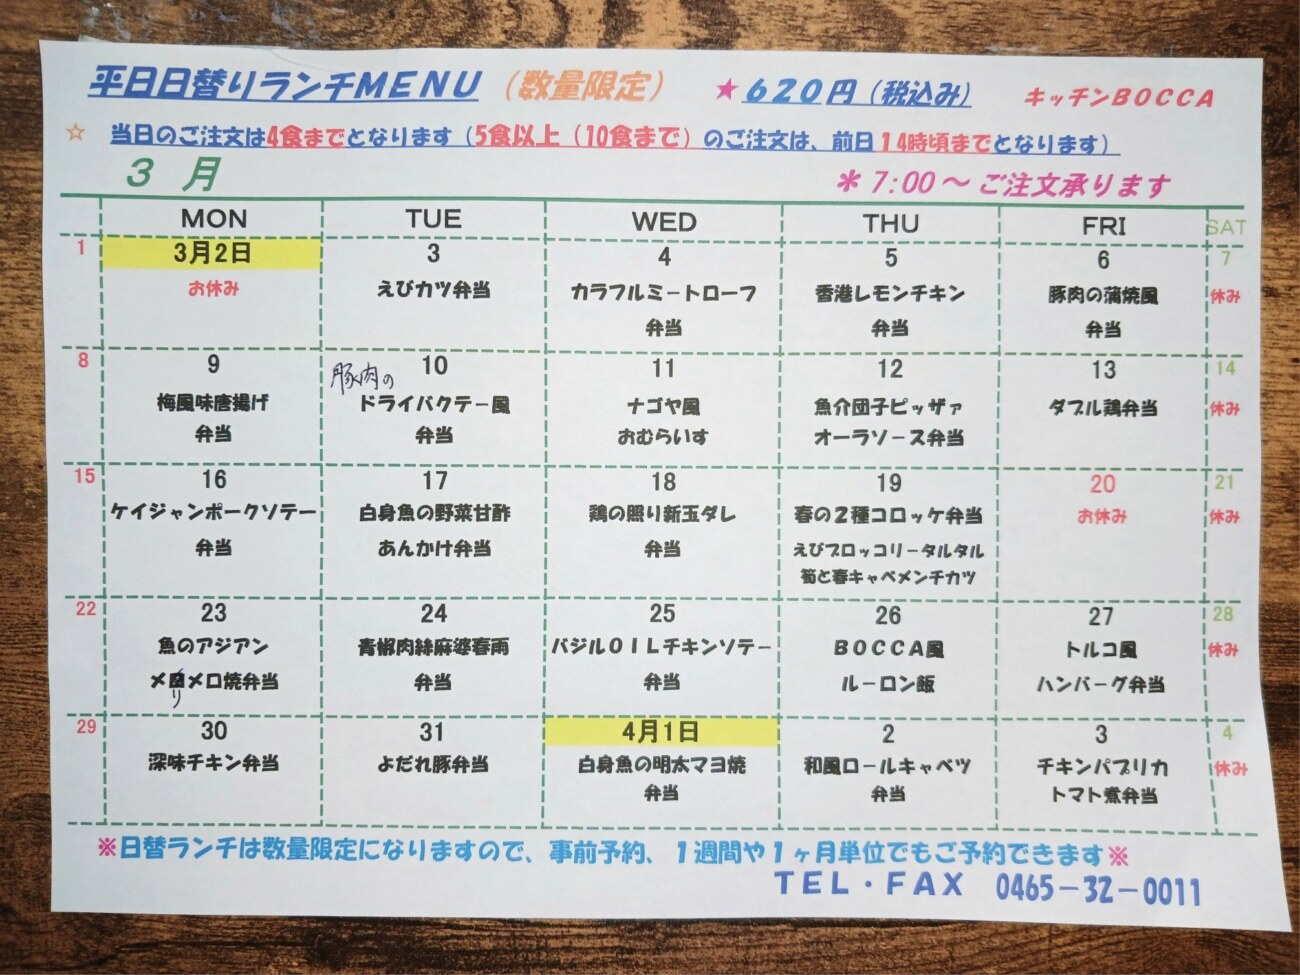 平日日替りランチMENU（数量限定） ★620円（税込み） キッチンBOCCA
☆ 当日のご注文は4食までとなります（5食以上（10食まで）のご注文は、前日14時頃までとなります）
3 月 ＊7:00～ご注文承ります
MON TUE WED THU FRI SAT
1 3月2日 3 4 5 6 7
お休み えびカツ弁当 カラフルミートローフ 香港レモンチキン 豚肉の蒲焼風 休み
弁当 弁当 弁当
8 9 10 11 12 13 14
豚肉の
梅風味唐揚げ ドライバクテー風 ナゴヤ風 魚介団子ピッザァ ダブル鶏弁当 休み
弁当 弁当 おむらいす オーラソース弁当
15 16 17 18 19 20 21
ケイジャンポークソテー 白身魚の野菜甘酢 鶏の照り新玉ダレ 春の2種コロッケ弁当 お休み 休み
弁当 あんかけ弁当 弁当 えびブロッコリータルタル
筍と春キャベメンチカツ
22 23 24 25 26 27 28
魚のアジアン 青椒肉絲麻婆春雨 バジルOILチキンソテー BOCCA風 トルコ風 休み
メリメロ焼弁当 弁当 弁当 ルーロン飯 ハンバーグ弁当
29 30 31 4月1日 2 3 4
深味チキン弁当 よだれ豚弁当 白身魚の明太マヨ焼 和風ロールキャベツ チキンパプリカ 休み
弁当 弁当 トマト煮弁当
※日替ランチは数量限定になりますので、事前予約、1週間や1ヶ月単位でもご予約できます※
TEL・FAX 0465-32-0011